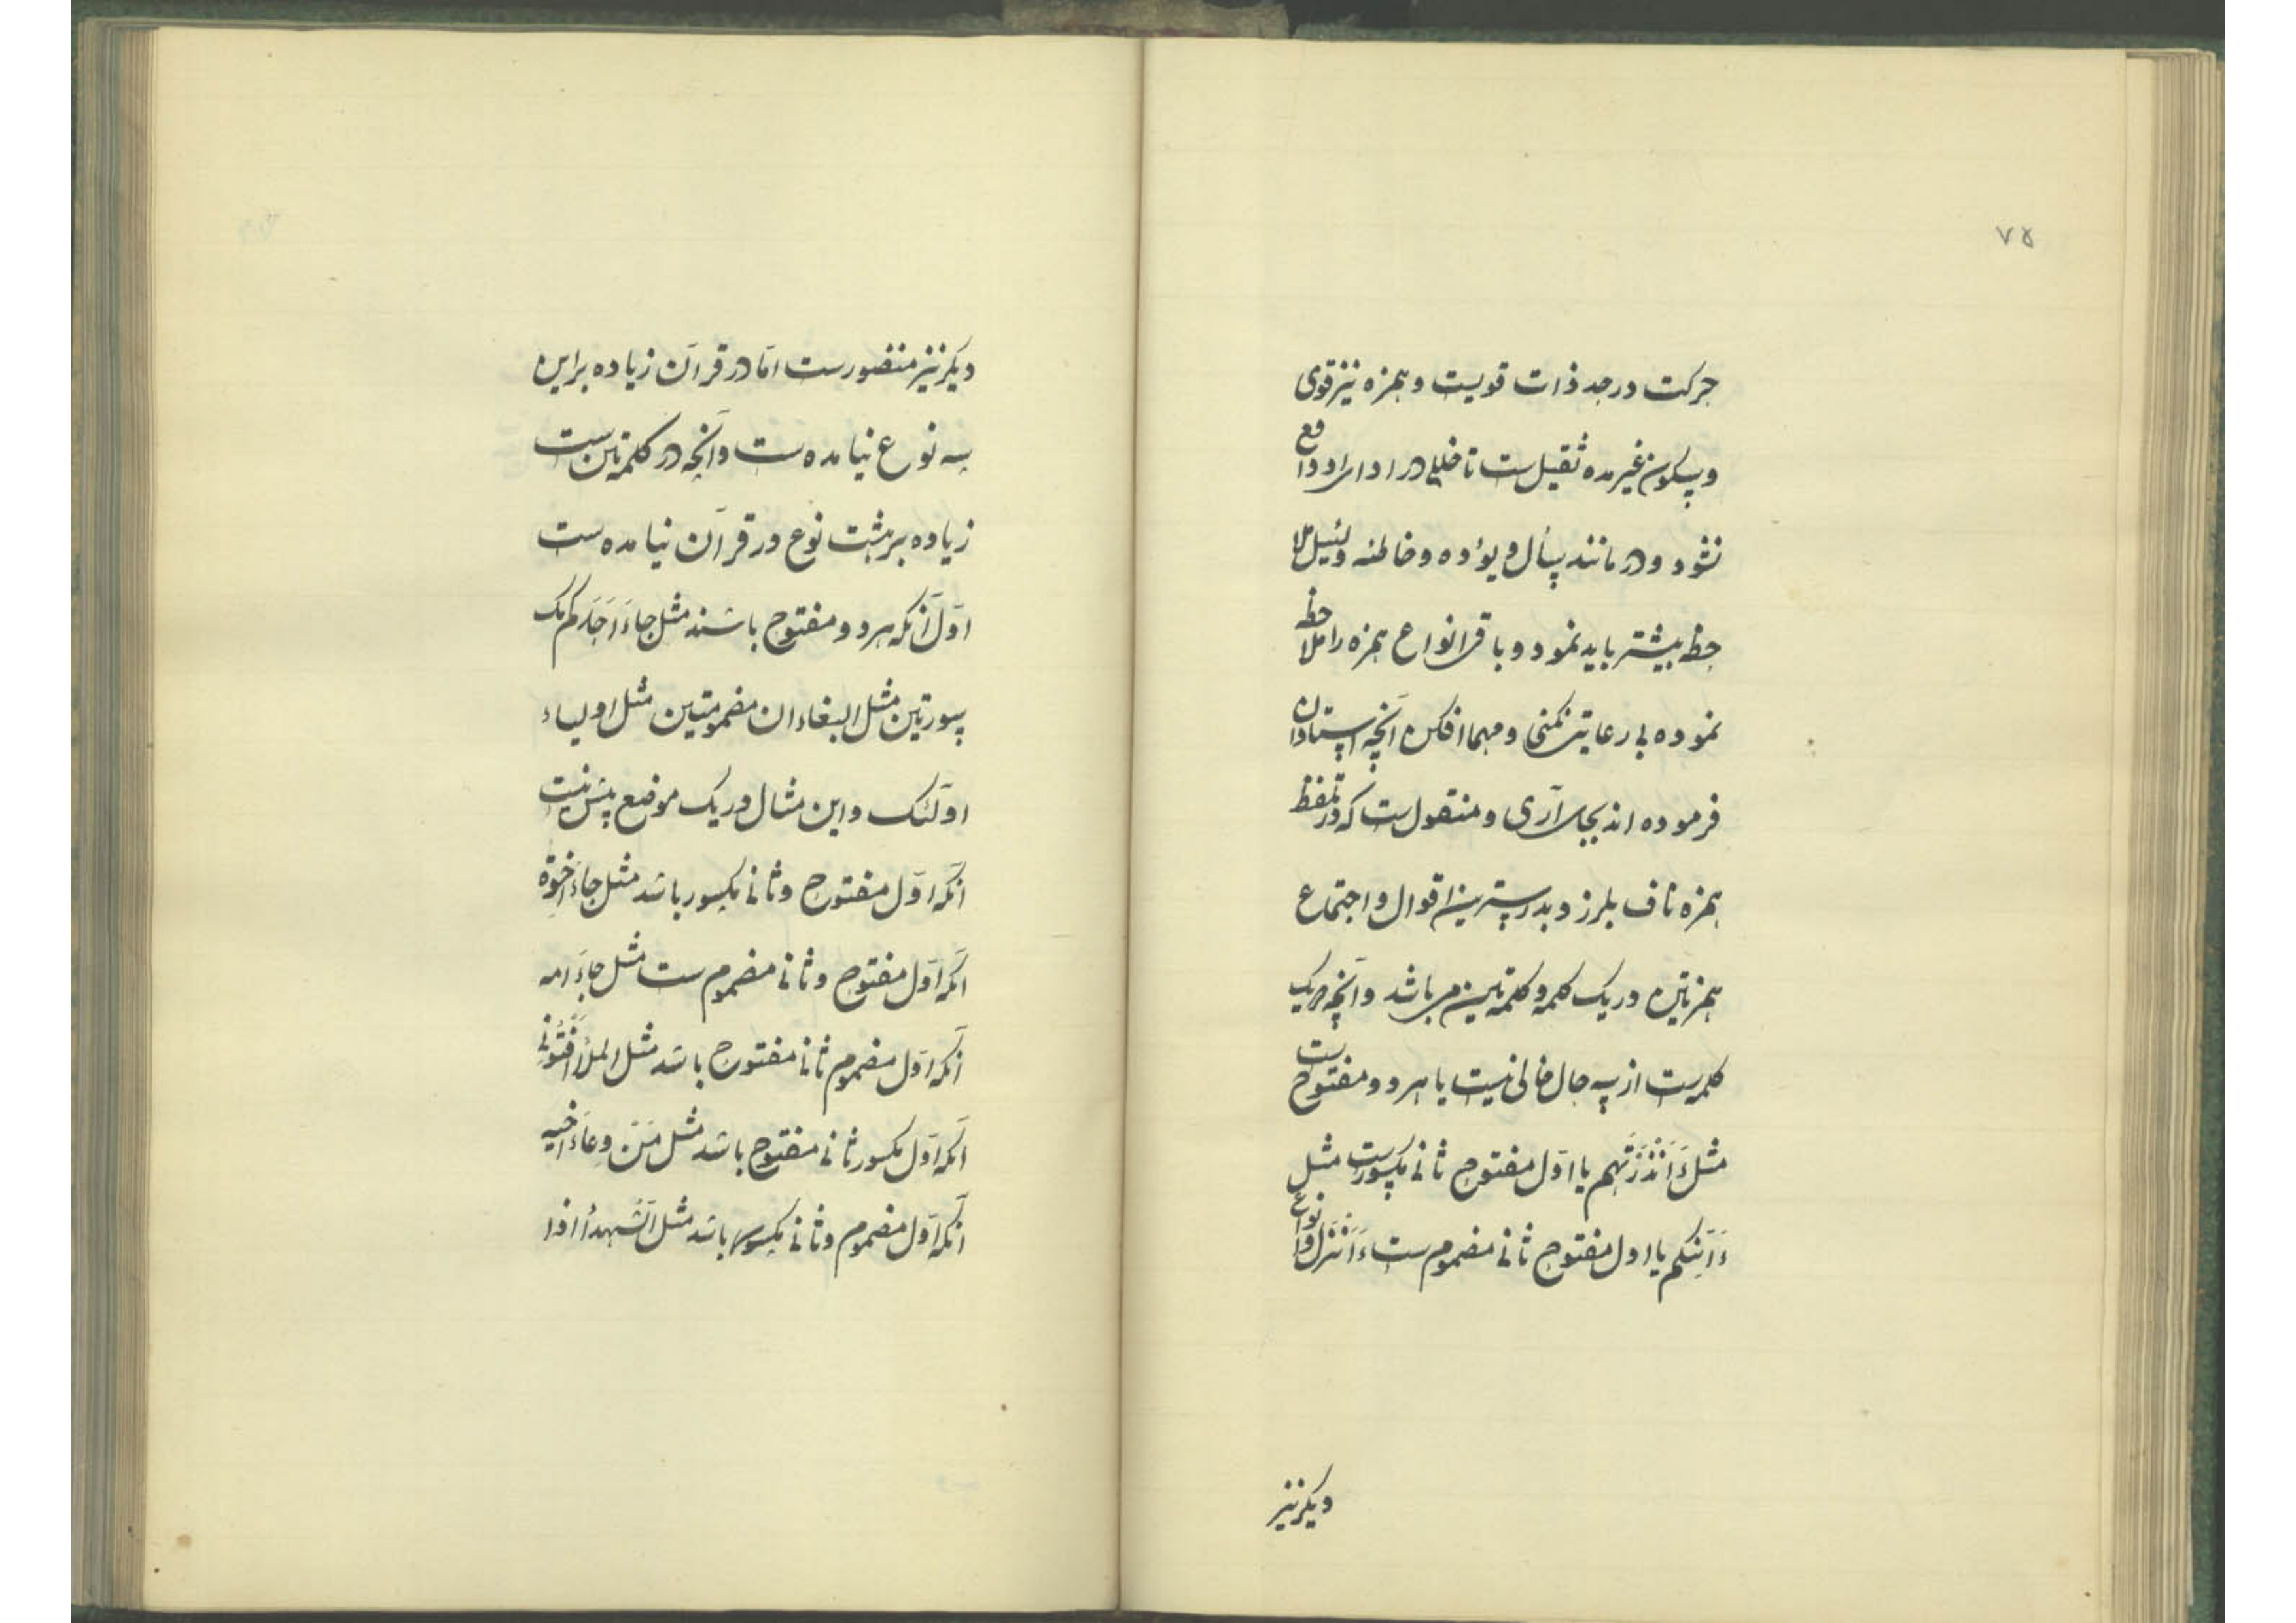 ۷۵
حرکت در حد ذات قویست و همزه نیز قوی
و بسکون غیر مده ثقیل ست تا خللی در ادای او واقع
نشود و در مانند یسأل و یؤده و خاطئه و سئیل ملا
حظ بیشتر باید نمود و باقی انواع همزه را ملاحظ
نموده بی رعایت نکنی و مهما امکن آنچه استادان
فرموده اند بجای آری و منقول ست که در تلفظ
همزه ناف بلرزد و بدرستی این اقوال و اجتماع
همزتین در یک کلمه و کلمتین می باشد و آنچه در یک
کلمه ست از سه حال خالی نیست یا هر دو مفتوح ست
مثل ءَاَنْذَرْتَهم یا اوّل مفتوح ثانی مکسورست مثل
ءَاَئِنّکم یا اول مفتوح ثانی مضموم ست ءَاُنْزِل و انواع
دیکر نیز
دیکر نیز متصورست امّا در قرآن زیاده بر این
سه نوع نیامده ست و آنچه در کلمتین ست
زیاده بر هشت نوع در قرآن نیامده ست
اوّل آنکه هر دو مفتوح باشند مثل جاءَ اَحَدَکم مک
سورتین مثل البغاء ان مضمومتین مثل اولیاء
اولٓئک و این مثال در یک موضع بیش نیست
آنکه اوّل مفتوح و ثانی مکسور باشد مثل جاءَ اِخوة
آنکه اوّل مفتوح و ثانی مضموم ست مثل جاءَ امه
آنکه اوّل مضموم ثانی مفتوح باشد مثل الملأ افتونی
آنکه اوّل مکسور ثانی مفتوح باشد مثل من وعاء اخیه
آنکه اوّل مضموم و ثانی مکسور باشد مثل الشهدأ اذا